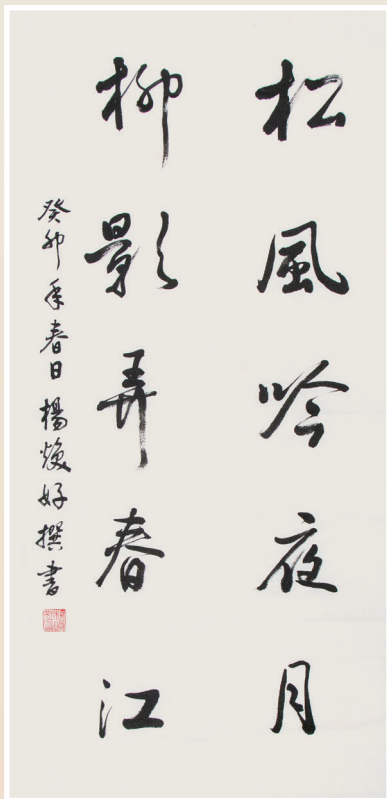 松風吟夜月
柳影弄春江
癸卯年春日楊煥好撰書